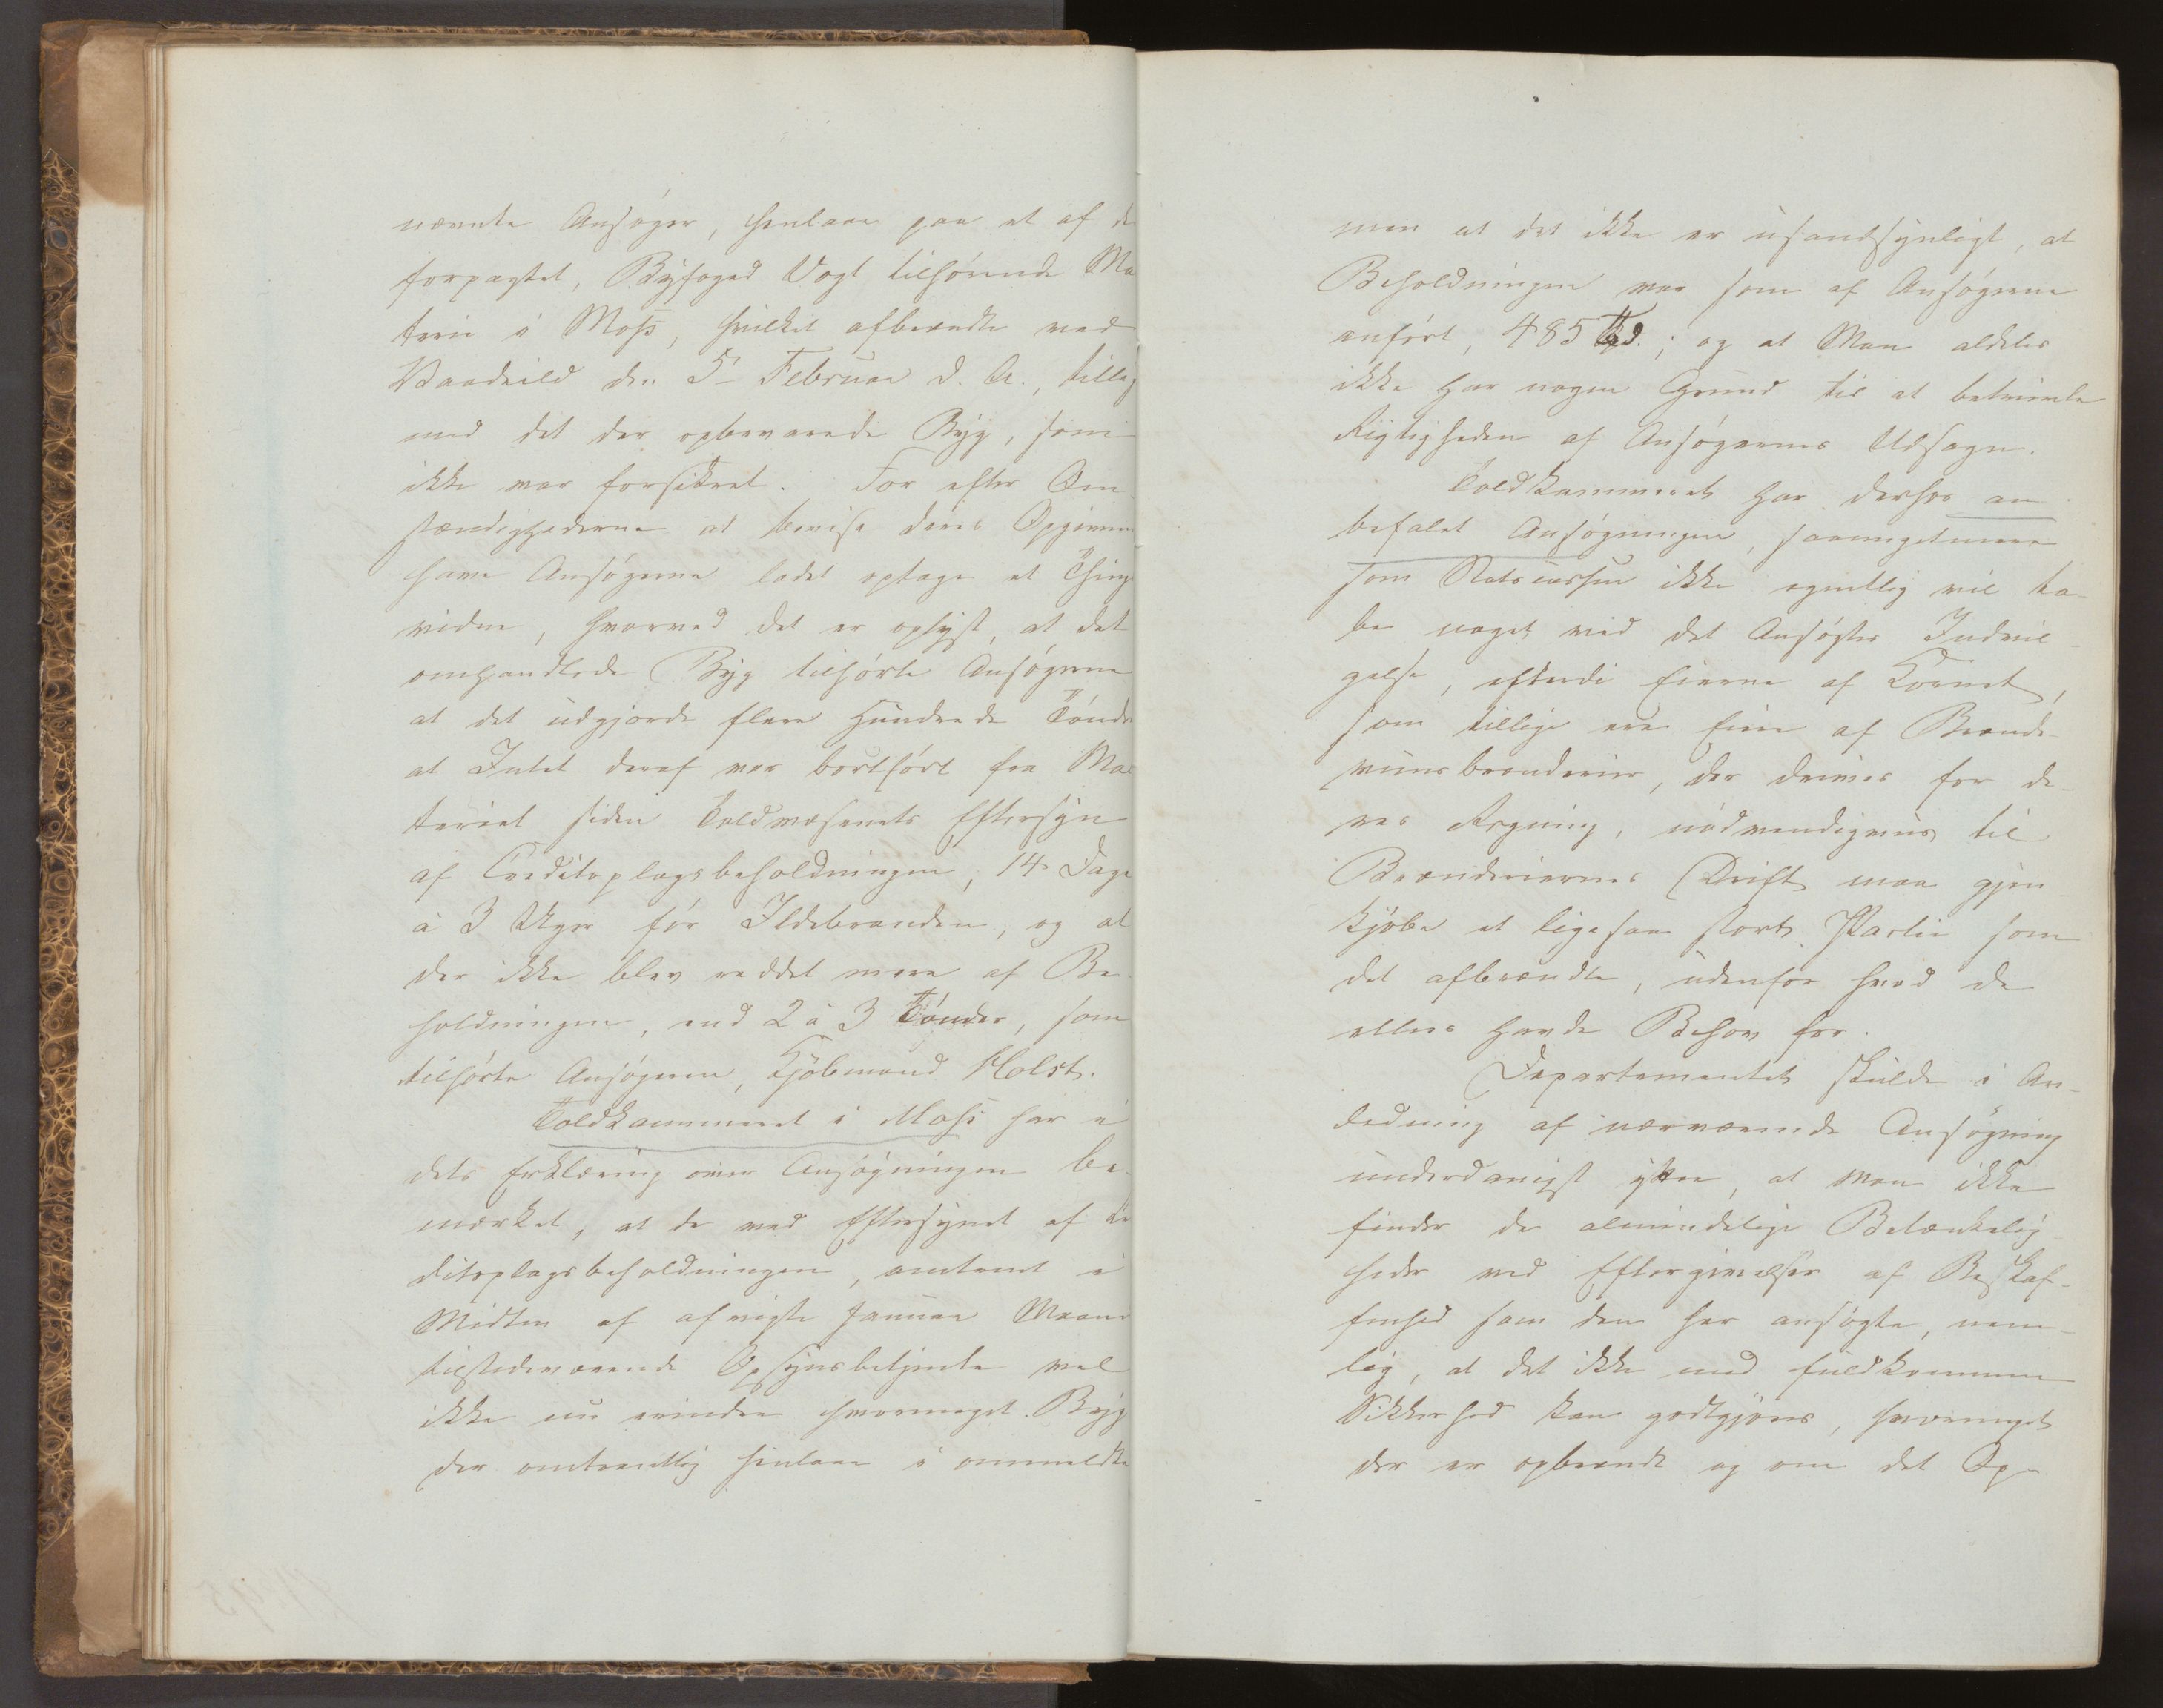 nævnte Ansøger, henlaae paa et af de
forpagtet, Byfoged Vogt tilhørende Ma
terie i Moss, hvilket afbrændte ved
Vaadeild den 5te Februar d. A., tillig
med det der opbevarede Byg, som
ikke var forsikret. For efter Om
stændighederne at bevise deres Opgivende
have Ansøgerne ladet optage et Thing
vidne, hvorved det er oplyst, at det
omhandlede Byg tilhørte Ansøgerne
at det udgjorde flere Hundrede Tønde
at Intet deraf var bortført fra Mal
teriet siden Toldvæsenets Eftersyn
af Creditoplagsbeholdningen, 14 Dage
à 3 Uger før Ildebranden, og at
der ikke blev reddet mere af Be
holdningen, end 2 à 3 Tønder, som
tilhørte Ansøgeren, Kjøbmand Holst.
Toldkammeret i Moss har i
dets Erklæring over Ansøgningen be-
mærket, at de ved Eftersynet af Cre
ditoplagsbeholdningen, omtrent i
Midten af afvigte Januar Maaned
tilstedeværende Opsynsbetjente vel
ikke nu erindre hvormeget Byg
der omtrentlig henlaae i ommeldte
men at det ikke er usandsynligt, at
Beholdningen var som af Ansøgerne
anført, 485 Td.; og at Man aldeles
ikke har nogen Grund til at betvivle
Rigtigheden af Ansøgernes Udsagn.
Toldkammeret har derhos an
befalet Ansøgningen, saameget mere
som Statscassen ikke egentlig vil ta-
be noget ved det Ansøgtes Indvil
gelse, efterdi Eierne af Kornet,
som tillige ere Eiere af Brænde-
viinsbrænderier, der drives for de-
res Regning, nødvendigviis til
Brænderiernes Drift maa gjen
kjøbe et ligesaa stort Partie som
det afbrændte, udenfor hvad de
ellers havde Behov for.
Departementet skulde i An-
ledning af nærværende Ansøgning
underdanigst yttre, at Man ikke
finder de almindelige Betænkelig-
heder ved Eftergivelser af Beskaf-
fenhed som den her ansøgte, nem-
lig, at det ikke med fuldkommen
Sikkerhed kan godtgjøres, hvormeget
der er opbrændt og om det Op-